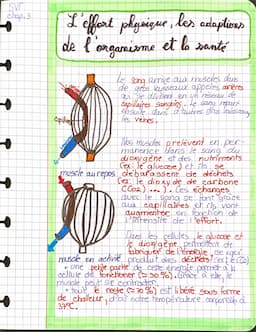 SVT
chap.3
L'effort physique, les adaptions
de l'organisme et la santé
Le sang arrive aux muscles dans
de gros vaisseaux appelés artères
qui se divisent en un réseau de
capillaires sanguins. Le sang repart
ensuite dans d'autres gros vaisseaux,
les veines.
capill
Nos muscles prélèvent en per-
manence dans le sang du
dioxygène et des nutriments
(ex: le glucose) et ils se
débarrassent de déchets
(ex: le dioxyde de carbone
(CO2) ...). Ces échanges
avec le sang se font grâce
aux capillaires et ils vont
augmenter en fonction de
l'intensité de l'effort.
muscle au repos
Dans les cellules, le glucose et
le dioxygène permettent de
fabriquer de l'énergie, ce qui
produit des déchets (ex: le CO2)
muscle en activité
• une petite partie de cette énergie permet à la
cellule de fonctionner (≈ 30 %). Grâce à elle, le
muscle peut se contracter.
• tout le reste (≈ 70 %) est libéré sous forme
de chaleur, d'où notre température corporelle à
37°C.